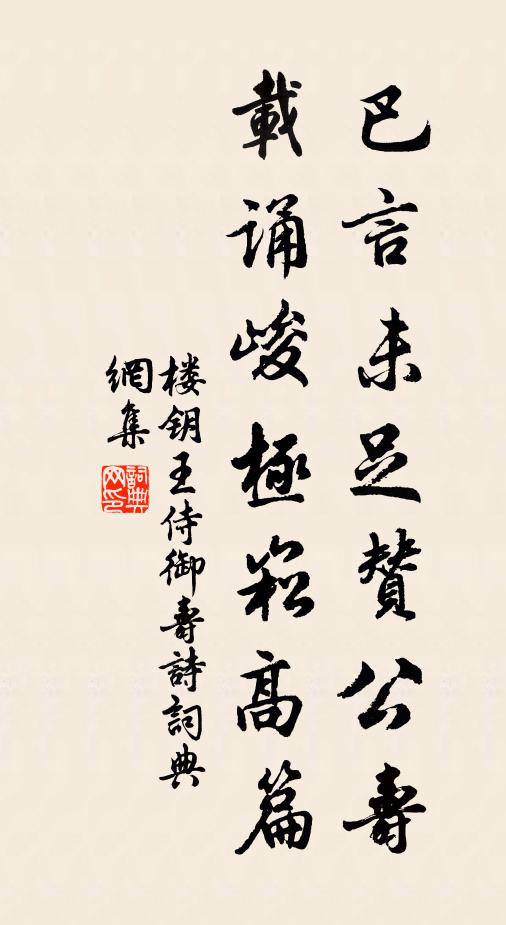 巴言未足賛公壽
載诵峻極崧高篇
楼钥王侍御壽詩詞典
網集
詞典网印